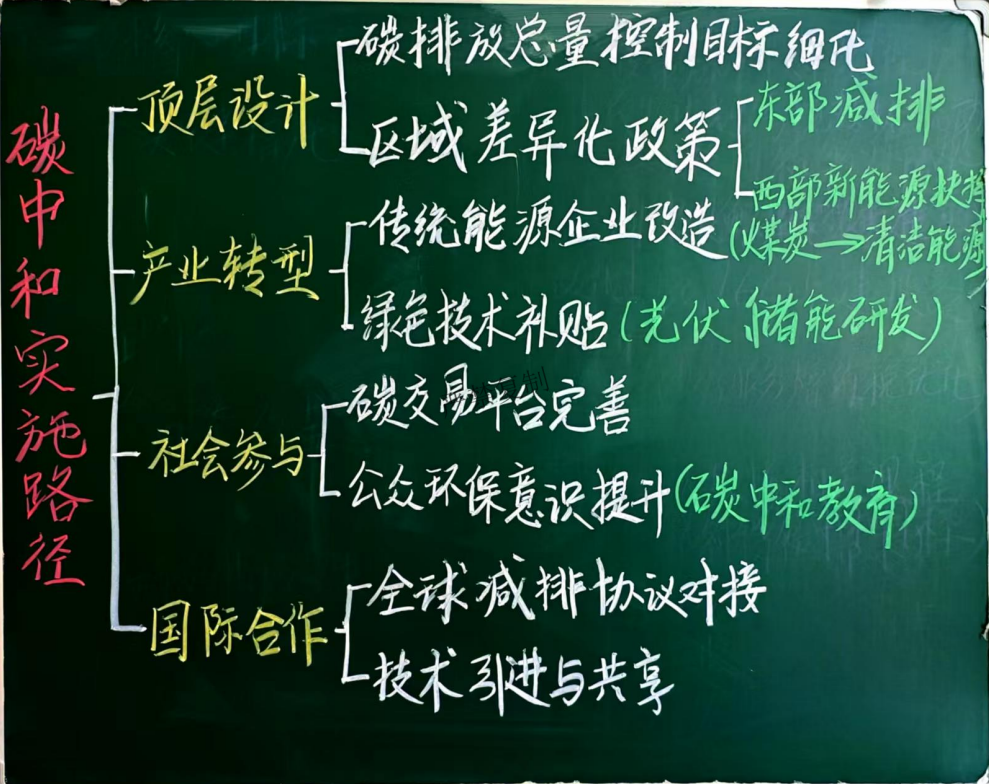 碳中和实施路径
顶层设计
碳排放总量控制目标细化
区域差异化政策
东部减排
西部新能源扶持
产业转型
传统能源企业改造(煤炭→清洁能源)
绿色技术补贴(光伏 储能研发)
社会参与
碳交易平台完善
公众环保意识提升(碳中和教育)
国际合作
全球减排协议对接
技术引进与共享